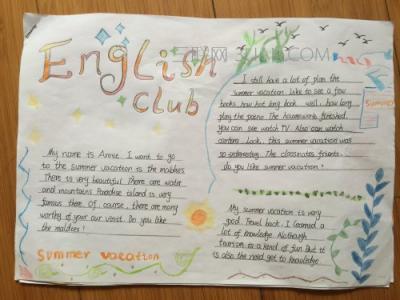 English
Club
My name is Annie. I want to go
to the summer vacation is the maldives.
There is very beautiful. There are water
and mountains. Paradise island is very
famous there. Of course, there are many
worthy of your our visit. Do you like
the maldives!
Summer vacation
I still have a lot of plan the
summer vacation. Like to see a few
books, how hot tiny book well, how long
play the poeno. The houseworks finished,
you can see watch TV. Also can watch
cartons. Look, this summer vacation was
so interesting. The classmates friants,
do you like summer vacation!
Summer
My summer vacation is very
good. Travel back, I learned a
lot of knowledge. Although
tourism is a kind of fun. But it
is also the need got to knowledge.